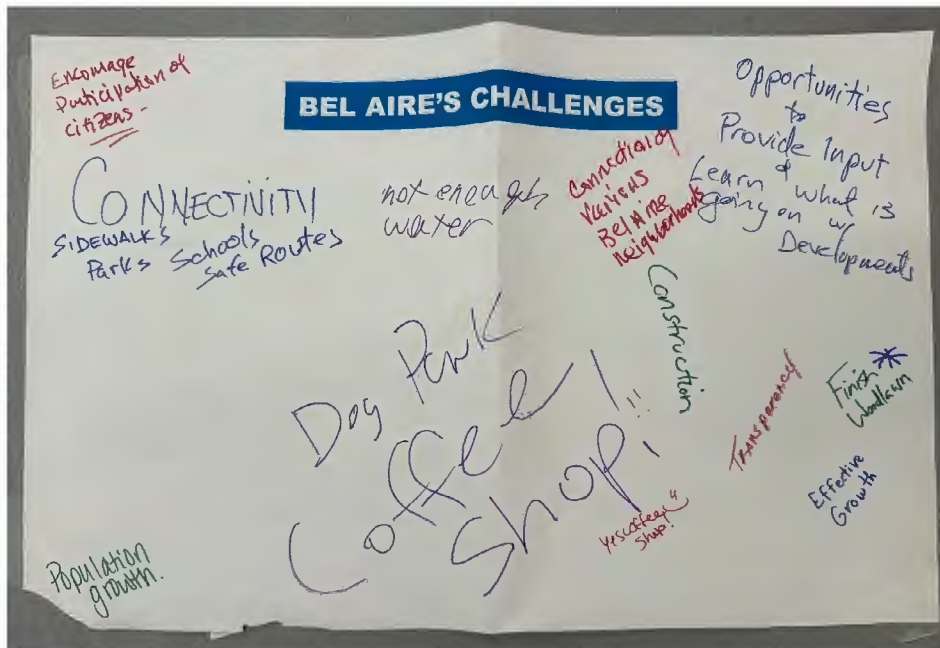 BEL AIRE'S CHALLENGES
Encourage
Participation of
citizens-
CONNECTIVITY
SIDEWALKS
Parks Schools
Safe Routes
not enough
water
Connection of
Various
Bel Aire
neighborhoods
Opportunities
to
Provide Input
&
Learn what is
going on w/
Developments
Construction
Dog Park
Coffee
Shop!!!
Yes coffee
Shop!
Transparency
Finish
Woodlawn
Effective
Growth
Population
growth.